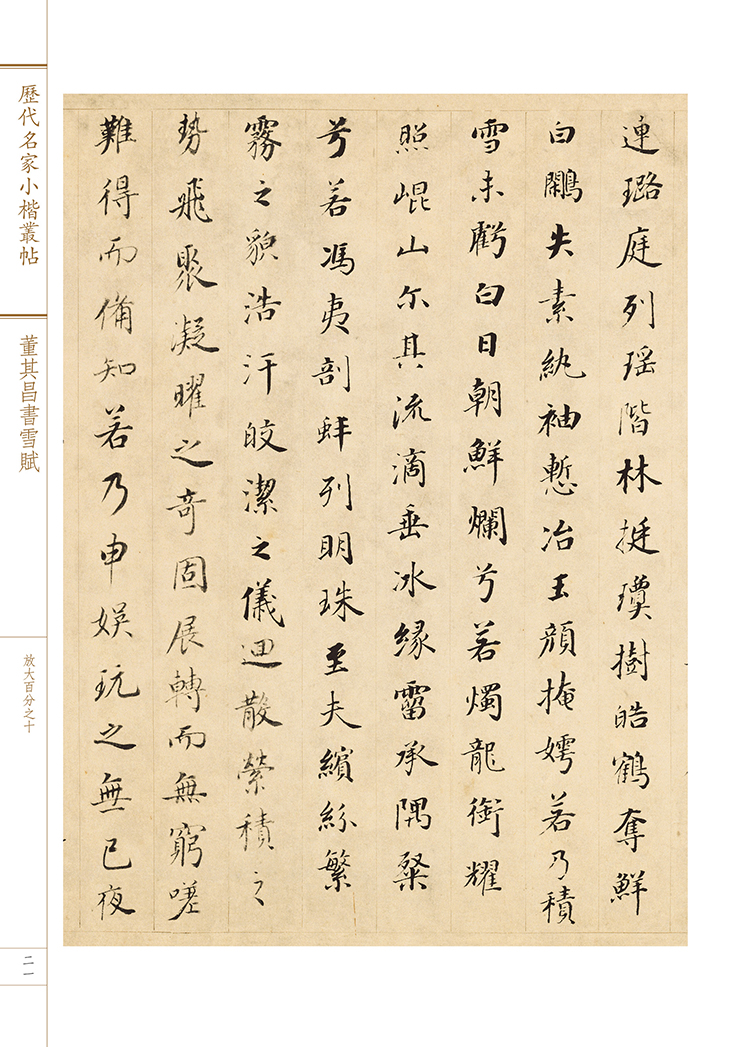 連璐庭列瑶階林挺瓊樹皓鶴奪鮮
白鷴失素紈袖慙冶玉顔掩嫮若乃積
雪未虧白日朝鮮爛兮若燭龍銜耀
照崐山尔其流滴垂冰緣霤承隅粲
兮若馮夷剖蚌列明珠至夫繽紛繁
霧之貌浩汗皎潔之儀迴散縈積之
勢飛聚凝曜之奇固展轉而無窮嗟
難得而備知若乃申娛玩之無已夜
歷代名家小楷叢帖
董其昌書雪賦
放大百分之十
二一